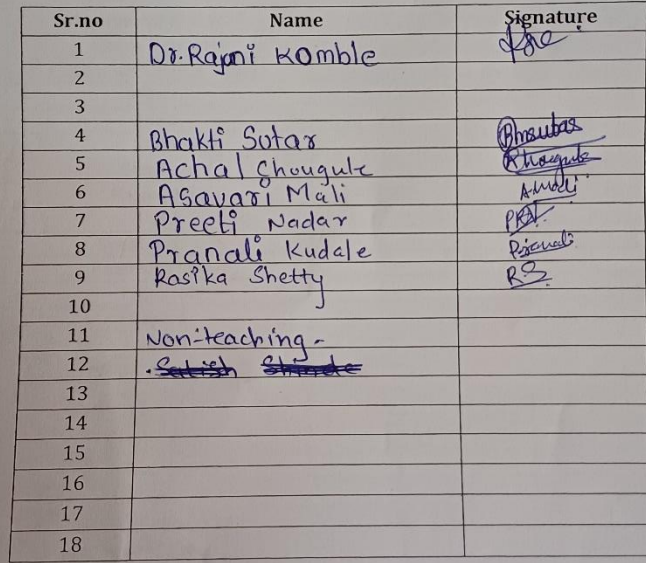 Sr.no Name Signature
1 Dr. Rajani Komble
2
3
4 Bhakti Sutar Bmsutar
5 Achal Chougule AChougule
6 Asavari Mali A.Mali
7 Preeti Nadar PRN
8 Pranali Kudale Pranali
9 Rasika Shetty RS
10
11 Non-teaching-
12
13
14
15
16
17
18